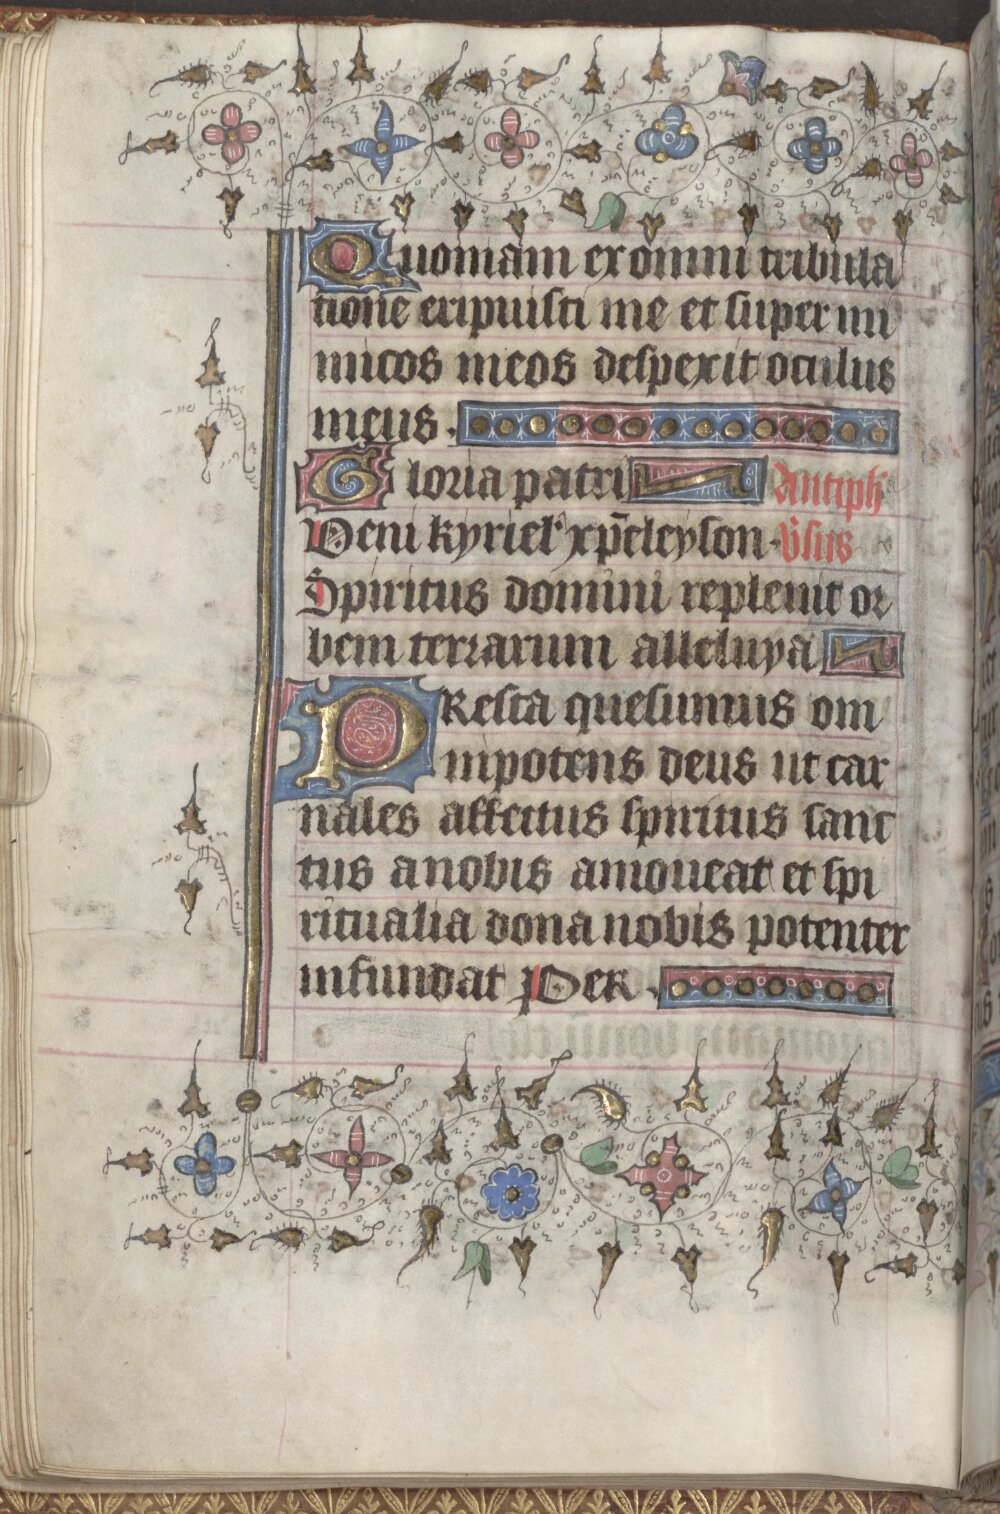 Quoniam ex omni tribula
tione eripuisti me et super ini
micos meos despexit oculus
meus.
Gloria patri Antiph
Veni kyriel' xp̄eleyson. v̄sus
Spiritus domini repleuit or
bem terrarum alleluya
PResta quesumus om
nipotens deus ut car
nales affectus spiritus sanc
tus a nobis amoueat et spi
ritualia dona nobis potenter
infundat Per.